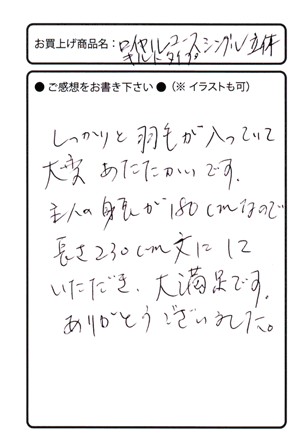 お買上げ商品名：ロイヤルゴースシングル立体
キルトタイプ
● ご感想をお書き下さい ●（※ イラストも可）
しっかりと羽毛が入っていて
大変 あたたかいです。
主人の身長が180cmなので
長さ230cm丈にして
いただき、大満足です。
ありがとうございました。